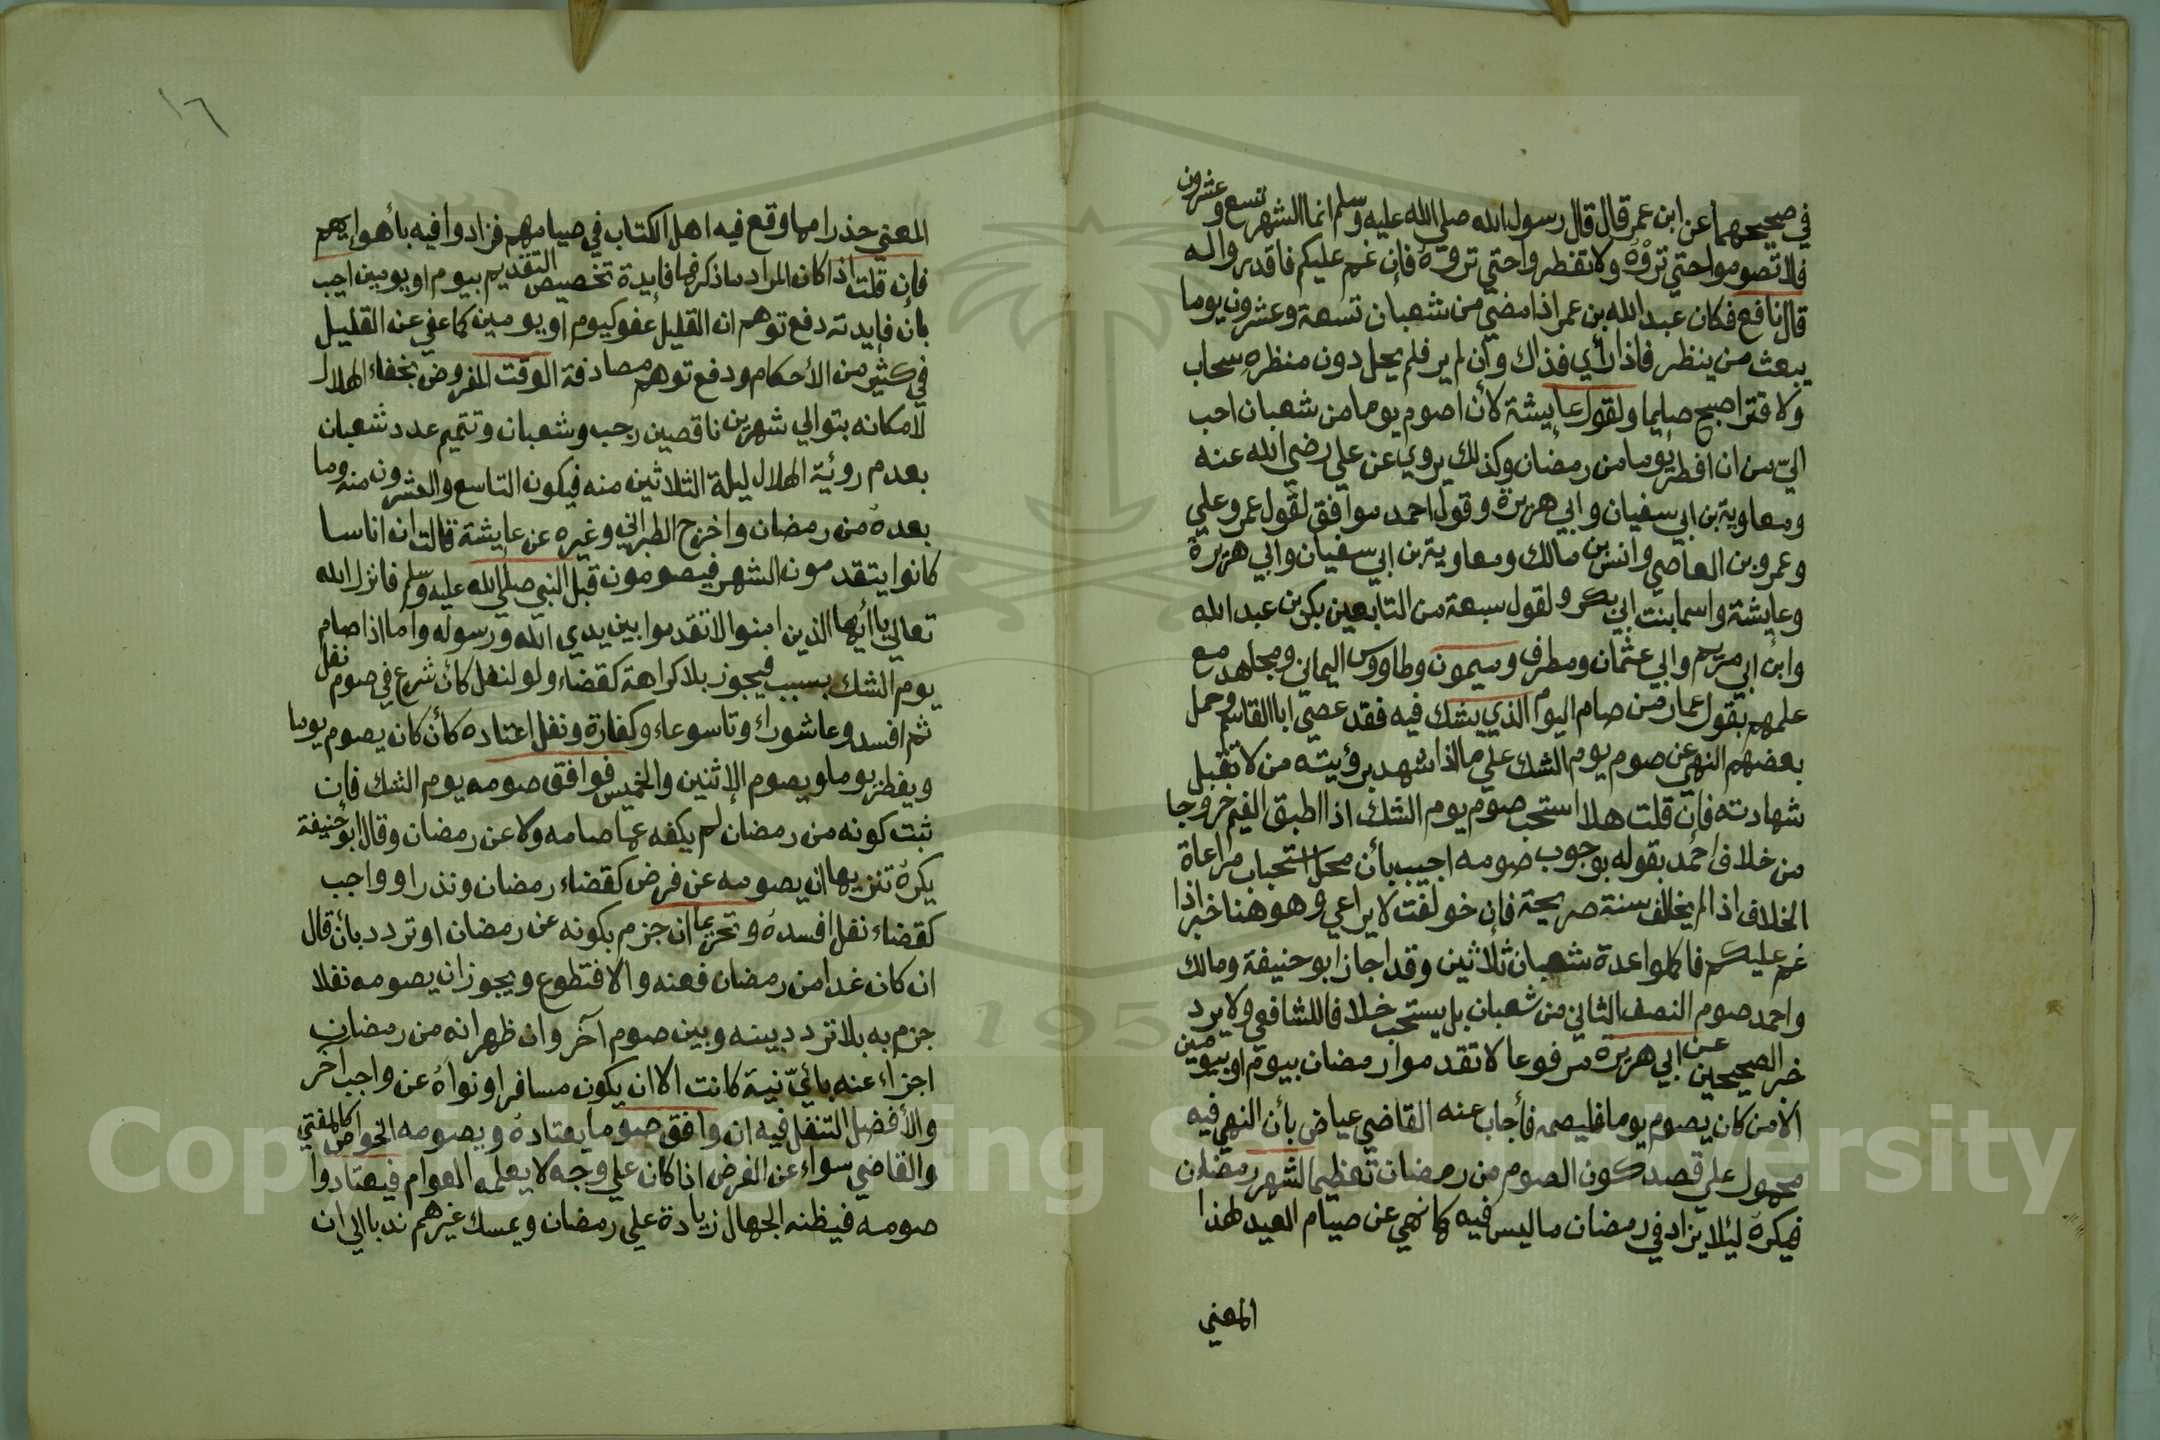 في صحيحهما عن ابن عمر قال قال رسول الله صلي الله عليه وسلم انما الشهر تسع وعشرون
فلا تصوموا حتي تروه ولا تفطروا حتي تروه فإن غم عليكم فاقدروا له
قال نافع فكان عبد الله بن عمر اذا مضي من شعبان تسعة وعشرون يوما
يبعث من ينظر فاذا رأي فذاك وان لم ير فلم يحل دون منظره سحاب
ولا قتر اصبح صايما ولقول عايشة لأن اصوم يوما من شعبان احب
اليّ من ان افطر يوما من رمضان وكذلك يروي عن علي رضي الله عنه
ومعاوية بن ابي سفيان وابي هريرة وقول احمد موافق لقول عمر وعلي
وعمرو بن العاصي وانس بن مالك ومعاوية بن ابي سفيان وابي هريرة
وعايشة واسما بنت ابي بكر ولقول سبعة من التابعين بكر بن عبد الله
وابن ابي مريم وابي عثمان ومطرف وميمون وطاووس اليماني ومجاهد مع
علمهم بقول عمار من صام اليوم الذي يشك فيه فقد عصي ابا القاسم وحمل
بعضهم النهي عن صوم يوم الشك علي ما اذا شهد برؤيته من لا تقبل
شهادته فإن قلت هلا استحب صوم يوم الشك اذا اطبق الغيم خروجا
من خلاف احمد بقوله بوجوب صومه اجيب بأن محل استحباب مراعاة
الخلاف اذا لم يخالف سنة صريحة فإن خولفت لا يراعي وهو هنا خبر اذا
غم عليكم فاكملوا عدة شعبان ثلاثين وقد اجاز ابو حنيفة ومالك
واحمد صوم النصف الثاني من شعبان بل يستحب خلافا للشافعي ولا يرد
خبر الصحيحين عن ابي هريرة مرفوعا لا تقدموا رمضان بيوم او بيومين
الا من كان يصوم يوما فليصمه فأجاب عنه القاضي عياض بأن النهي فيه
محمول علي قصد كون الصوم من رمضان تعظيما لشهر رمضان
فيكره ليلا يزاد في رمضان ما ليس فيه كما نهي عن صيام العيد لهذا
المعني
١٦
المعني حذرا مما وقع فيه اهل الكتاب في صيامهم فزادوا فيه بأهوايهم
فإن قلت اذا كان المراد ما ذكر فما فايدة تخصيص التقديم بيوم او يومين اجيب
بان فايدته دفع توهم ان القليل عفو كيوم او يومين كما عفي عن القليل
في كثير من الأحكام ودفع توهم مصادفة الوقت المفروض بخفاء الهلال
لامكانه بتوالي شهرين ناقصين رجب وشعبان وتتميم عدد شعبان
بعدم روئية الهلال ليلة الثلاثين منه فيكون التاسع والعشرون منه وما
بعده من رمضان واخرج الطبراني وغيره عن عايشة قالت ان اناسا
كانوا يتقدمون الشهر فيصومون قبل النبي صلي الله عليه وسلم فانزل الله
تعالي يا أيها الذين امنوا لا تقدموا بين يدي الله ورسوله واما اذا صام
يوم الشك بسبب فيجوز بلا كراهة كقضاء ولو لنفل كأن شرع في صوم نفل
ثم افسده وعاشوراء وتاسوعاء وكفارة ونفل اعتاده كأن كان يصوم يوما
ويفطر يوما ويصوم الإثنين والخميس فوافق صومه يوم الشك فإن
ثبت كونه من رمضان لم يكفه عما صامه ولا عن رمضان وقال ابو حنيفة
يكره تنزيها ان يصومه عن فرض كقضاء رمضان ونذر او واجب
كقضاء نفل افسده وتحريما ان جزم بكونه عن رمضان او تردد بأن قال
ان كان غدا من رمضان فعنه والا فتطوع ويجوز ان يصومه نفلا
جزم به بلا تردد بينه وبين صوم آخر وان ظهر انه من رمضان
اجزاء عنه بأيّ نية كانت الا ان يكون مسافرا ونواه عن واجب آخر
والأفضل التنفل فيه ان وافق صوما يعتاده ويصومه الخواص كالمفتي
والقاضي سواء عن الفرض اذا كان علي وجه لا يعلمه العوام فيعتادوا
صومه فيظنه الجهال زيادة علي رمضان ويمسك غيرهم ندبا الي ان
Copyright © King Saud University
195